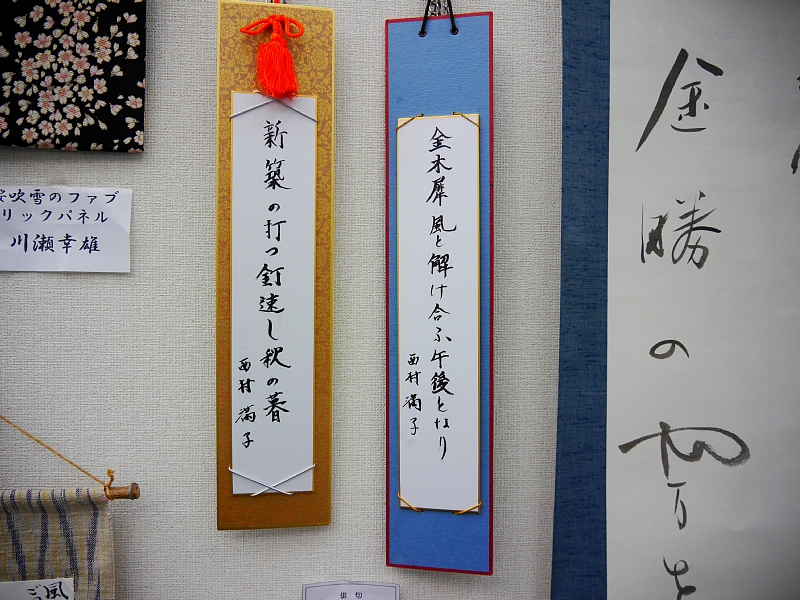 新築の打つ釘速し秋の暮
西村 満子
金木犀風と解け合ふ午後となり
西村 満子
桜吹雪のファブ
リックパネル
川瀬幸雄
俳句
金勝の